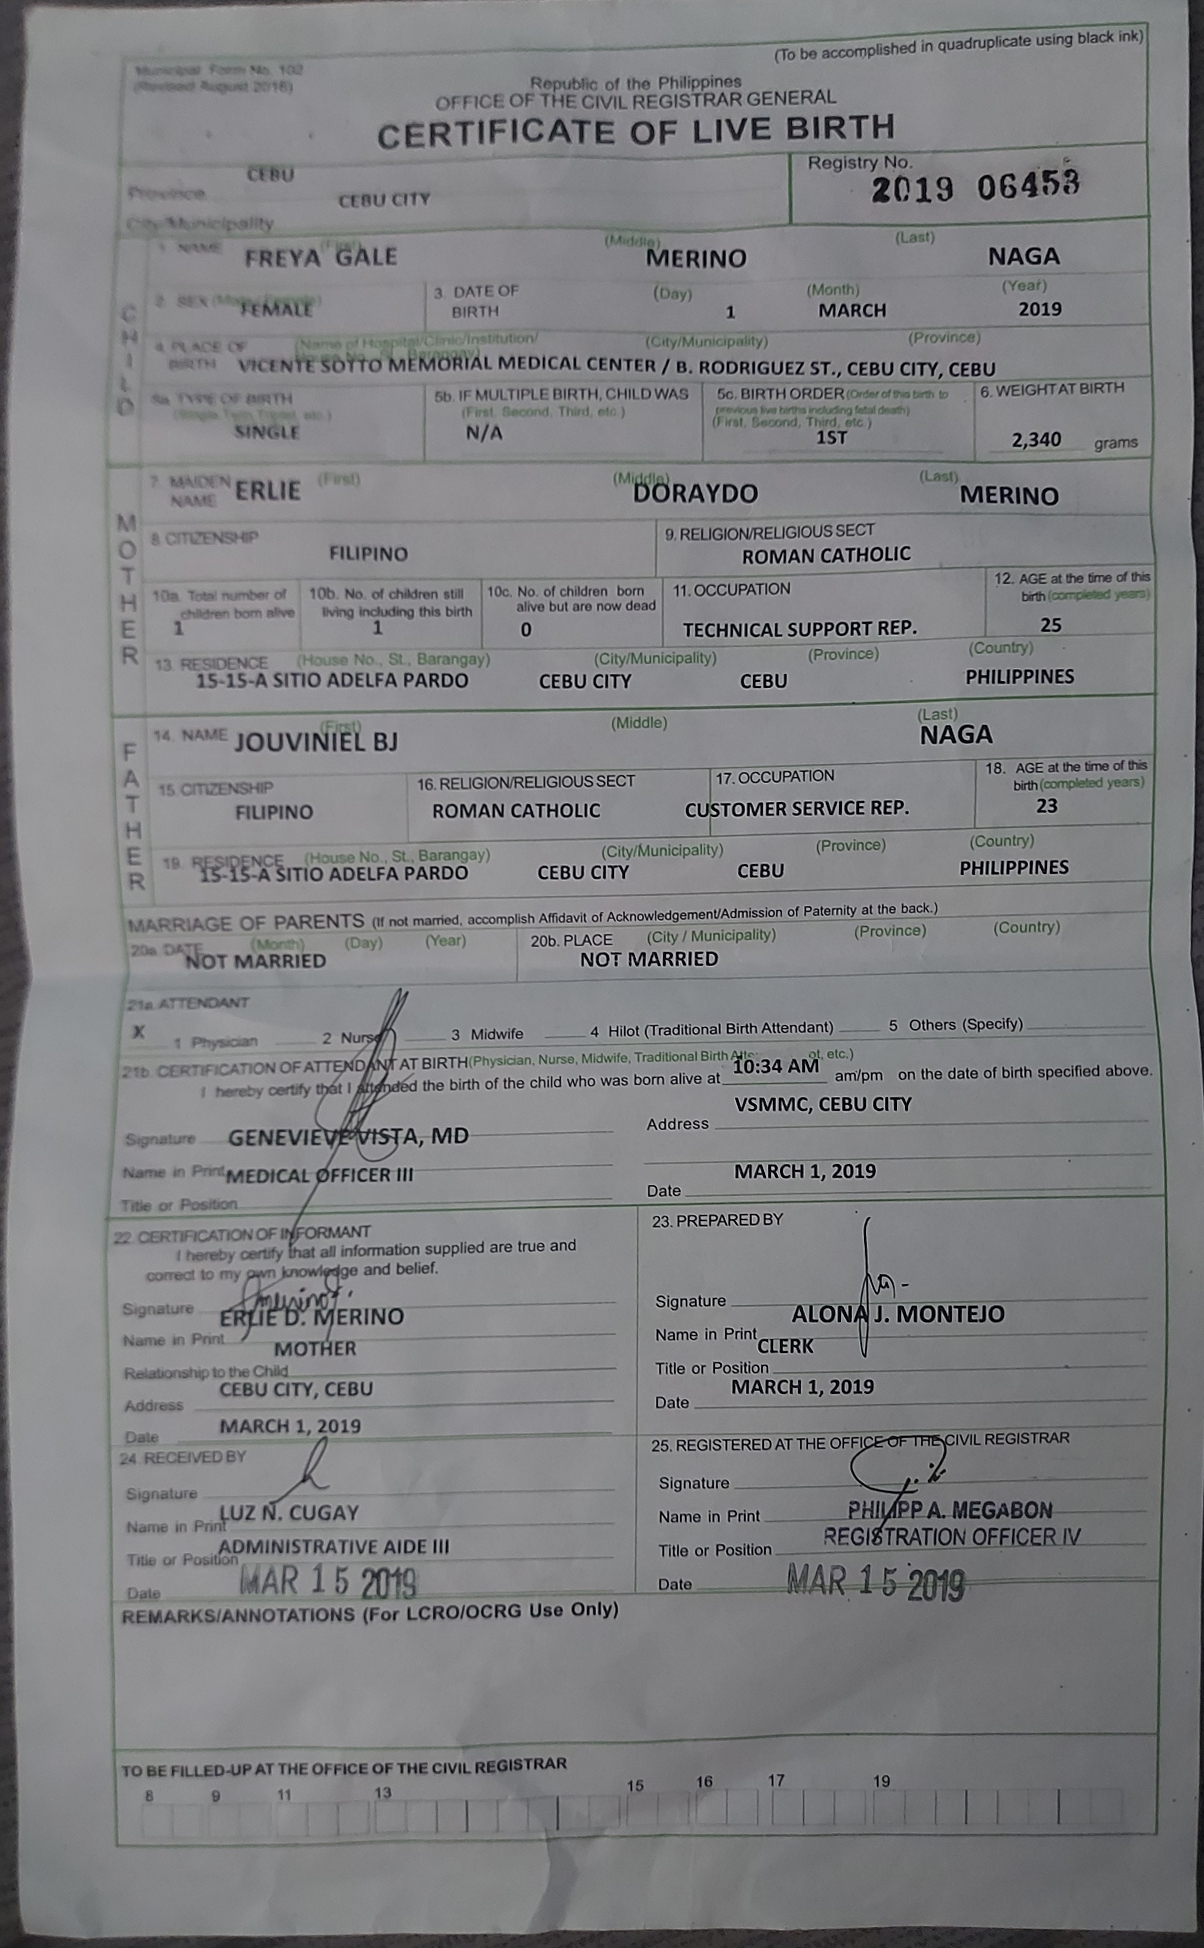 (To be accomplished in quadruplicate using black ink)
Municipal Form No. 102
(Revised August 2016)
Republic of the Philippines
OFFICE OF THE CIVIL REGISTRAR GENERAL
CERTIFICATE OF LIVE BIRTH
Province CEBU
City/Municipality CEBU CITY
Registry No.
2019 06453
CHILD
1. NAME (First) (Middle) (Last)
FREYA GALE MERINO NAGA
2. SEX (Male / Female) 3. DATE OF BIRTH (Day) (Month) (Year)
FEMALE 1 MARCH 2019
4. PLACE OF BIRTH (Name of Hospital/Clinic/Institution/ House No., St., Barangay) (City/Municipality) (Province)
VICENTE SOTTO MEMORIAL MEDICAL CENTER / B. RODRIGUEZ ST., CEBU CITY, CEBU
5a. TYPE OF BIRTH (Single, Twin, Triplet, etc.)
SINGLE
5b. IF MULTIPLE BIRTH, CHILD WAS (First, Second, Third, etc.)
N/A
5c. BIRTH ORDER (Order of this birth to previous live births including fetal death) (First, Second, Third, etc.)
1ST
6. WEIGHT AT BIRTH
2,340 grams
MOTHER
7. MAIDEN NAME (First) (Middle) (Last)
ERLIE DORAYDO MERINO
8. CITIZENSHIP
FILIPINO
9. RELIGION/RELIGIOUS SECT
ROMAN CATHOLIC
10a. Total number of children born alive
1
10b. No. of children still living including this birth
1
10c. No. of children born alive but are now dead
0
11. OCCUPATION
TECHNICAL SUPPORT REP.
12. AGE at the time of this birth (completed years)
25
13. RESIDENCE (House No., St., Barangay) (City/Municipality) (Province) (Country)
15-15-A SITIO ADELFA PARDO CEBU CITY CEBU PHILIPPINES
FATHER
14. NAME (First) (Middle) (Last)
JOUVINIEL BJ NAGA
15. CITIZENSHIP
FILIPINO
16. RELIGION/RELIGIOUS SECT
ROMAN CATHOLIC
17. OCCUPATION
CUSTOMER SERVICE REP.
18. AGE at the time of this birth (completed years)
23
19. RESIDENCE (House No., St., Barangay) (City/Municipality) (Province) (Country)
15-15-A SITIO ADELFA PARDO CEBU CITY CEBU PHILIPPINES
MARRIAGE OF PARENTS (If not married, accomplish Affidavit of Acknowledgement/Admission of Paternity at the back.)
20a. DATE (Month) (Day) (Year)
NOT MARRIED
20b. PLACE (City / Municipality) (Province) (Country)
NOT MARRIED
21a. ATTENDANT
X 1 Physician 2 Nurse 3 Midwife 4 Hilot (Traditional Birth Attendant) 5 Others (Specify)
21b. CERTIFICATION OF ATTENDANT AT BIRTH (Physician, Nurse, Midwife, Traditional Birth etc.)
I hereby certify that I attended the birth of the child who was born alive at 10:34 AM am/pm on the date of birth specified above.
Signature
Name in Print GENEVIEVE VISTA, MD
Title or Position MEDICAL OFFICER III
Address VSMMC, CEBU CITY
Date MARCH 1, 2019
22. CERTIFICATION OF INFORMANT
I hereby certify that all information supplied are true and
correct to my own knowledge and belief.
Signature
Name in Print ERLIE D. MERINO
Relationship to the Child MOTHER
Address CEBU CITY, CEBU
Date MARCH 1, 2019
23. PREPARED BY
Signature
Name in Print ALONA J. MONTEJO
Title or Position CLERK
Date MARCH 1, 2019
24. RECEIVED BY
Signature
Name in Print LUZ N. CUGAY
Title or Position ADMINISTRATIVE AIDE III
Date MAR 15 2019
25. REGISTERED AT THE OFFICE OF THE CIVIL REGISTRAR
Signature
Name in Print PHILIPP A. MEGABON
Title or Position REGISTRATION OFFICER IV
Date MAR 15 2019
REMARKS/ANNOTATIONS (For LCRO/OCRG Use Only)
TO BE FILLED-UP AT THE OFFICE OF THE CIVIL REGISTRAR
8 9 11 13 15 16 17 19